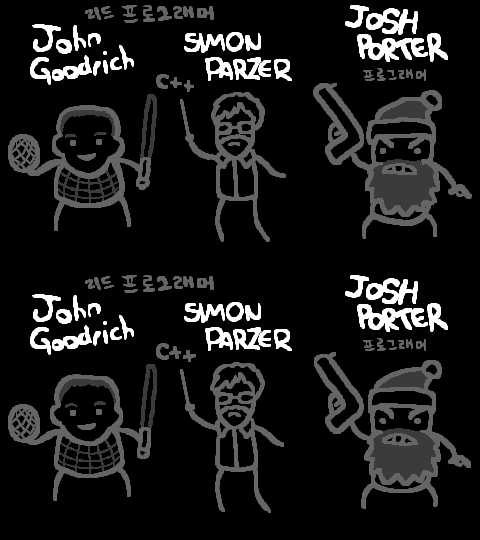 리드 프로그래머
John
Goodrich
SIMON
PARZER
C++
JOSH
PORTER
프로그래머
리드 프로그래머
John
Goodrich
SIMON
PARZER
C++
JOSH
PORTER
프로그래머